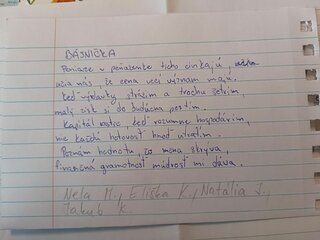 BÁSNIČKA
Peniaze v peňaženke ticho cinkajú,
učia nás, že cena vecí význam majú.
Keď výdavky strážim a trochu šetrím,
malý zisk si do budúcna poistím.
Kapitál rastie, keď rozumne hospodárim,
nie každú hotovosť hneď utratím.
Poznám hodnotu, čo mena skrýva,
finančná gramotnosť múdrosť mi dáva.
Nela M., Eliška K., Natália J.,
Jakub K.